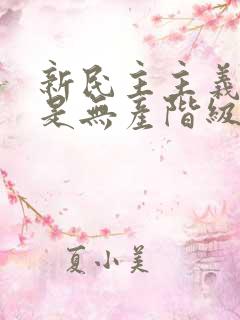 新民主主義
是無產階級
夏小美